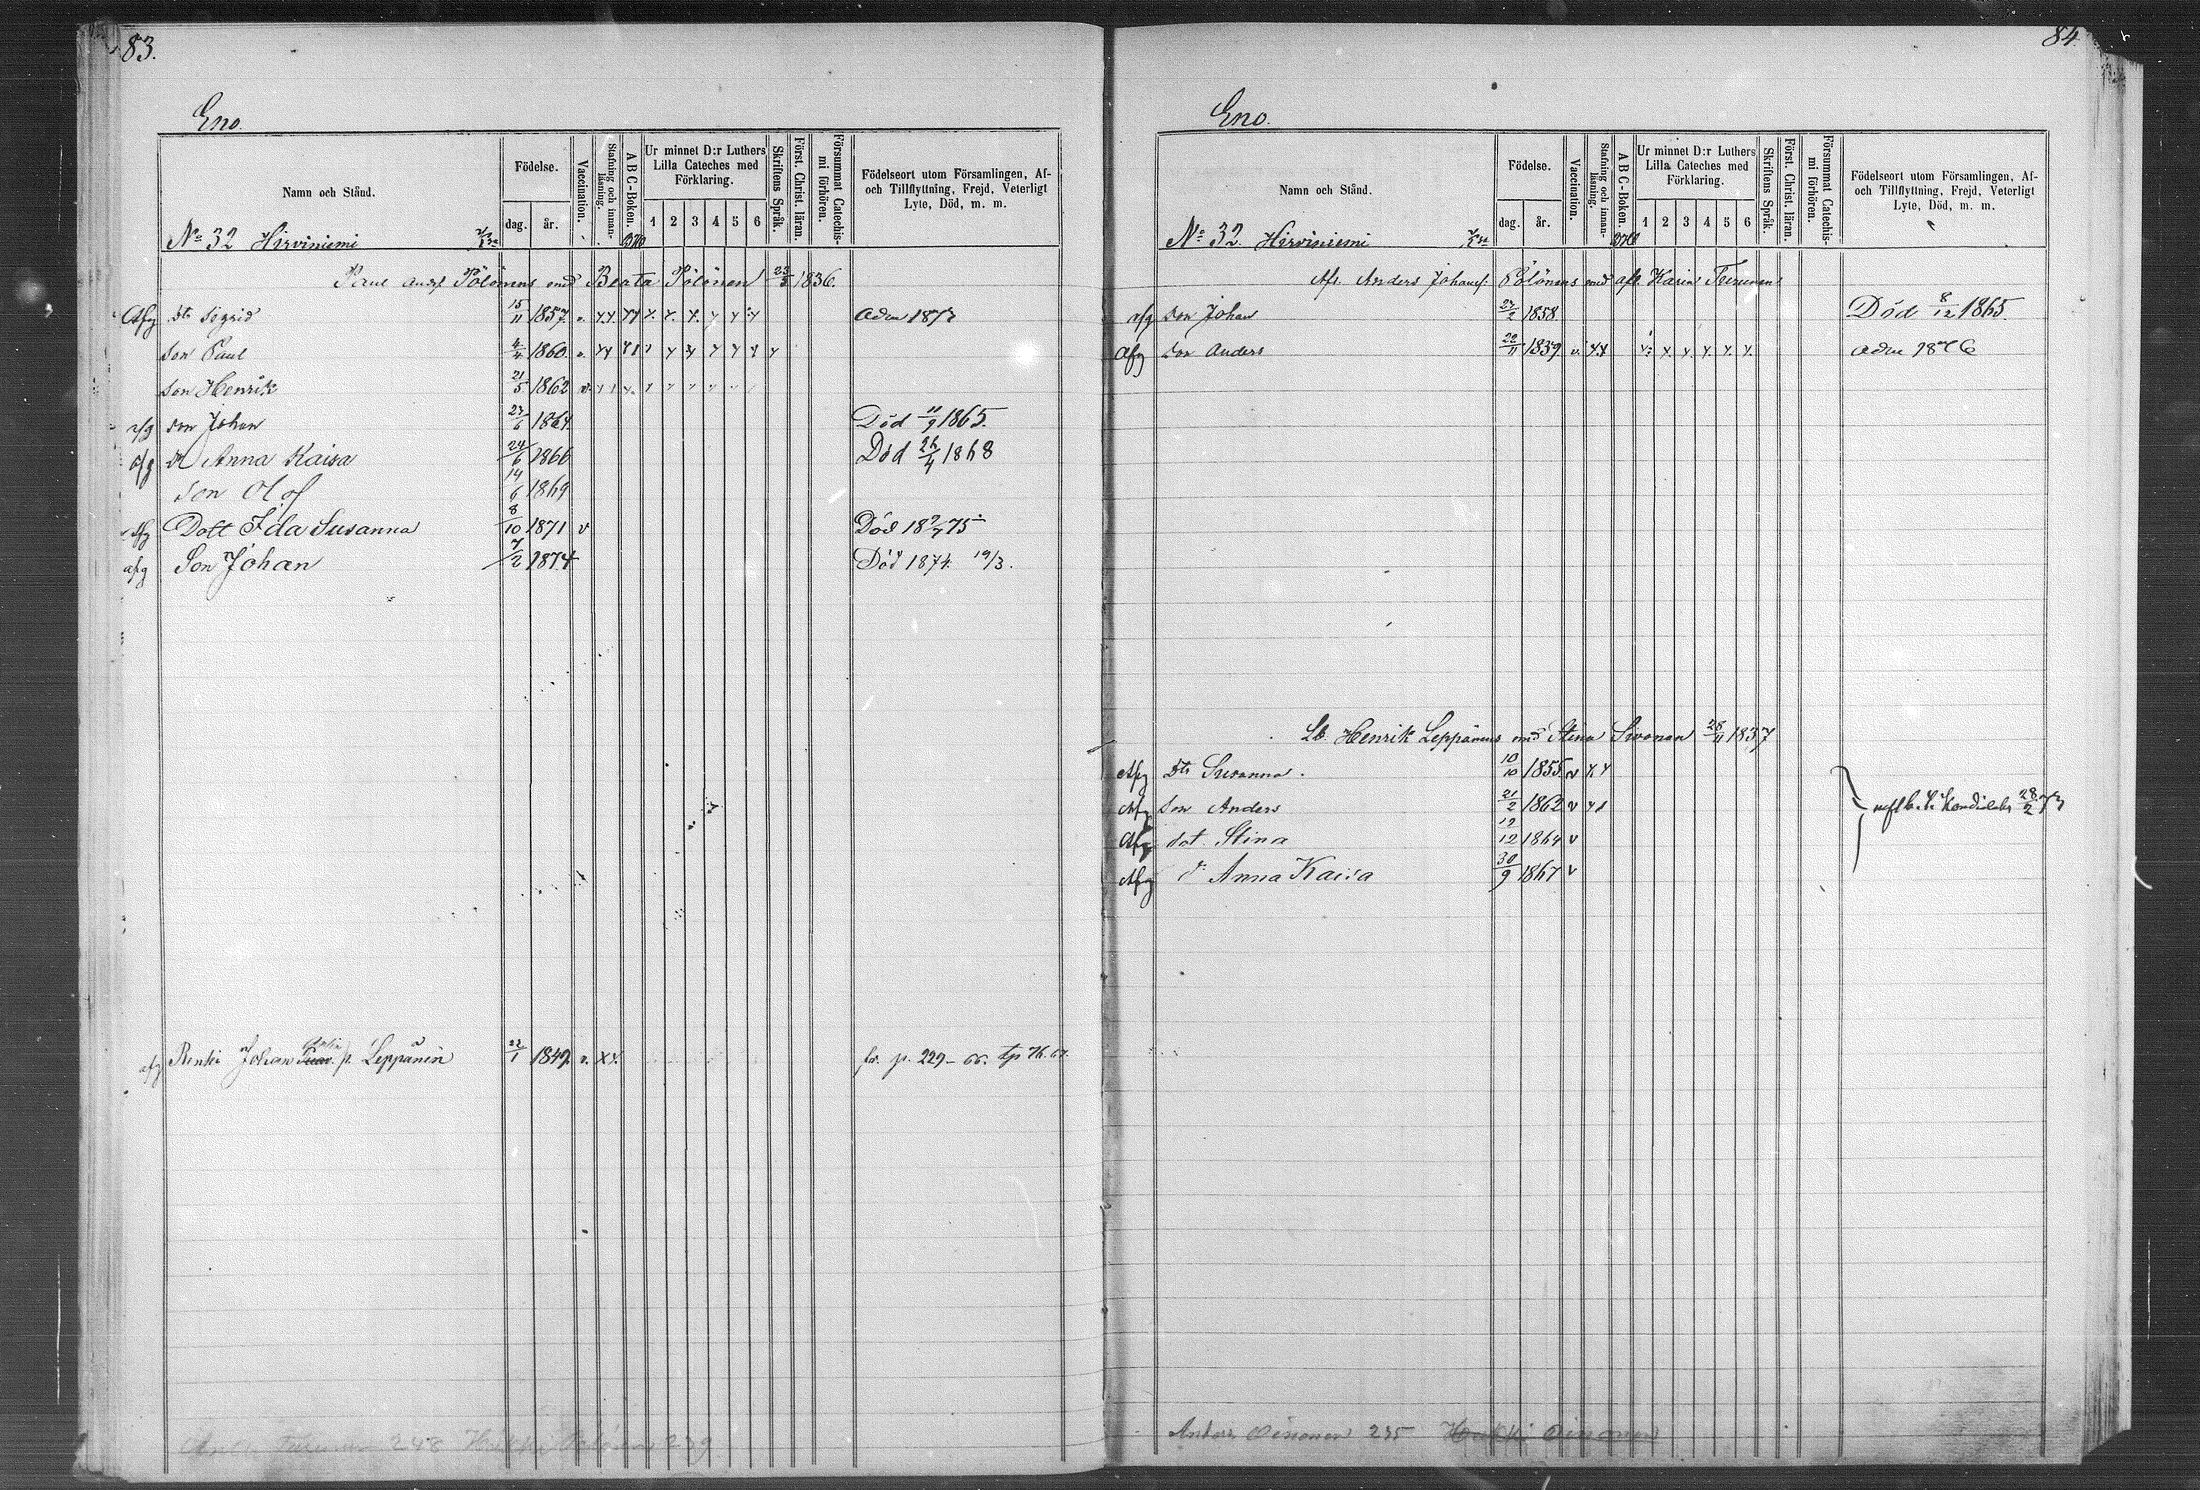 83.
Eno.
Namn och Stånd.
Födelse.
dag. år.
Vaccination.
Stafning och innan-läsning.
ABC-Boken.
Ur minnet D:r Luthers Lilla Cateches med Förklaring.
1 2 3 4 5 6
Skriftens Språk.
Först. Christ. läran.
Försummat Catechis-mi förhören.
Födelseort utom Församlingen, Af-
och Tillflyttning, Frejd, Veterligt
Lyte, Död, m. m.
No 32 Hirviniemi
Paul Pölönens med Beata Pölönen 23/3 1836.
Afg Dtr Sigrid 15/11 1857. v.
Son Paul 4/4 1860. v.
Son Henrik 21/5 1862 v.
afg son Johan 27/6 1864. Död 11/9 1865.
afg Dr Anna Kaisa 24/6 1866 Död 26/4 1868
Son Olof 14/6 1869
Afg Dott Ida Susanna 8/10 1871 v Död 18 75
afg Son Johan 7/2 1874 Död 1874. 19/3.
afg Renki Johan p. Leppänin 22/1 1849. v. XX. fr. p. 229-66.
248 239
84
Eno.
Namn och Stånd.
Födelse.
dag. år.
Vaccination.
Stafning och innan-läsning.
ABC-Boken.
Ur minnet D:r Luthers Lilla Cateches med Förklaring.
1 2 3 4 5 6
Skriftens Språk.
Först. Christ. läran.
Försummat Catechis-mi förhören.
Födelseort utom Församlingen, Af-
och Tillflyttning, Frejd, Veterligt
Lyte, Död, m. m.
No 32. Hirviniemi
Afl. Anders Johans. Pölönens med afl. Karin Turunen
afg son Johan 27/2 1858. Död 8/12 1865.
Afg son Anders 22/11 1859 v.
Lb. Henrik Leppänens med Stina Sivonen 28/11 1837
Afg Dtr Susanna. 10/10 1855 v
Afg son Anders 21/2 1862 v
Afg dot Stina 12/12 1864 v
Afg d: Anna Kaisa 30/9 1867 v
Anders Oinonen 235 Heikki Oinonen